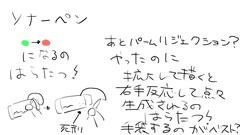 ソナーペン
になるの
はらたつ〜
死刑
あとパームリジェクション?
やったのに
拡大して描くと
右手反応して点々
生成されるの
はらたつ〜
手袋するのがベスト?